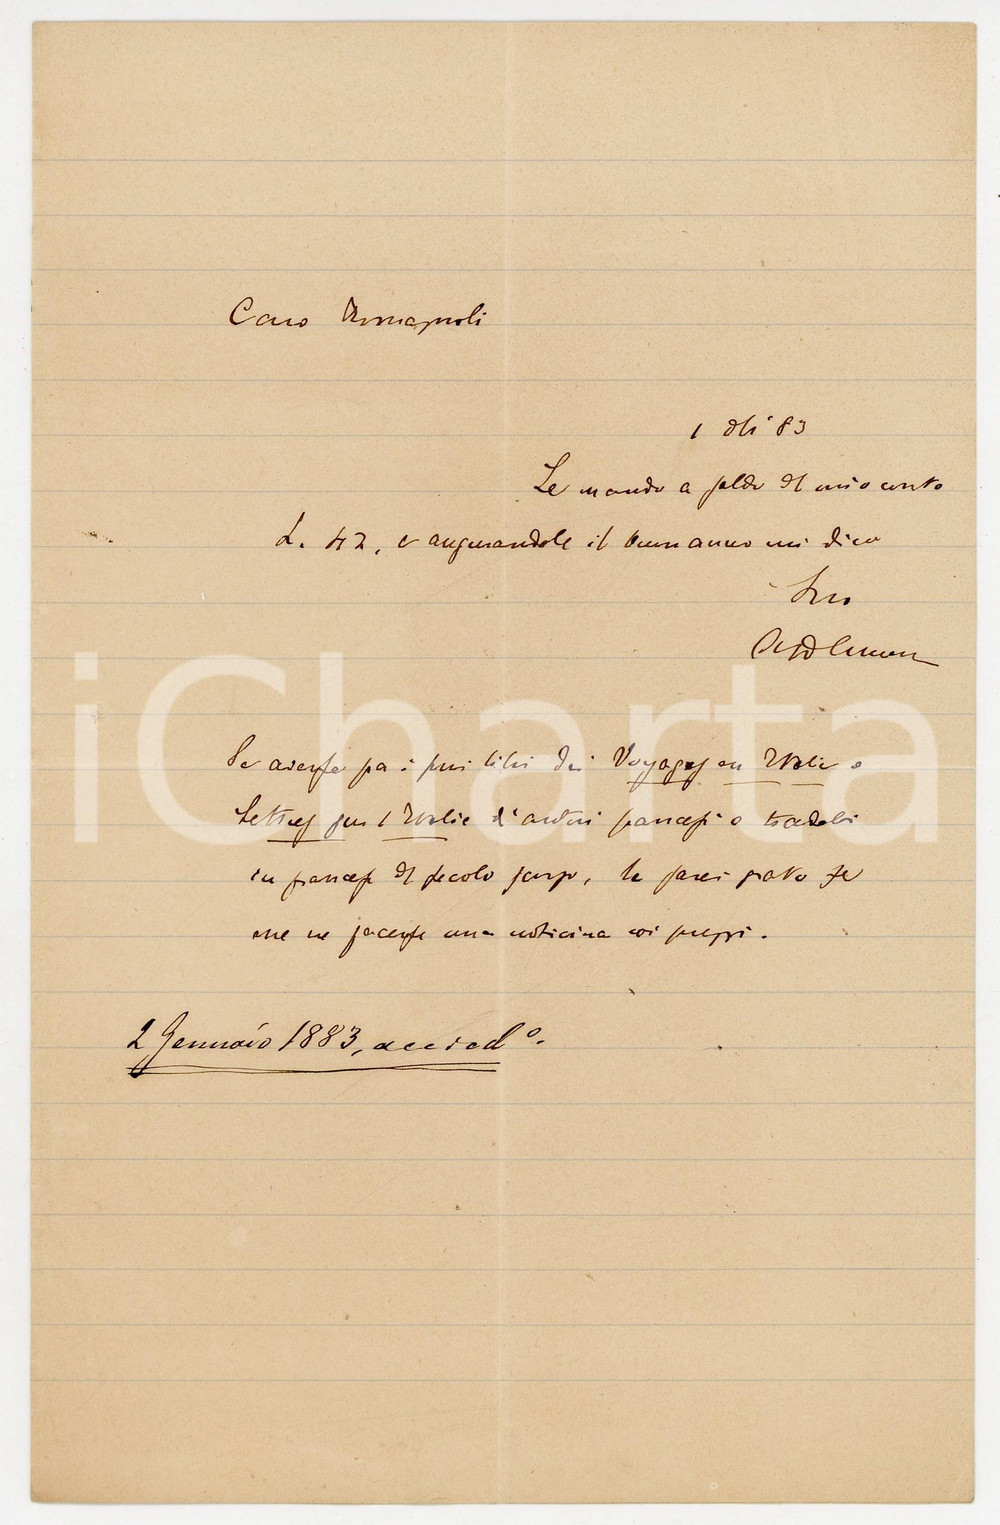 Caro Romagnoli
1 del 83
Le mando a saldo del mio conto
L. 42, e augurandole il buon anno mi dico
Suo
Se avesse fra i suoi libri dei Voyages en Italie o
Lettres sur l'Italie d'autori francesi o tradotti
in francese del secolo scorso, le sarei grato se
me ne facesse una noticina coi prezzi.
2 Gennaio 1883,
iCharta